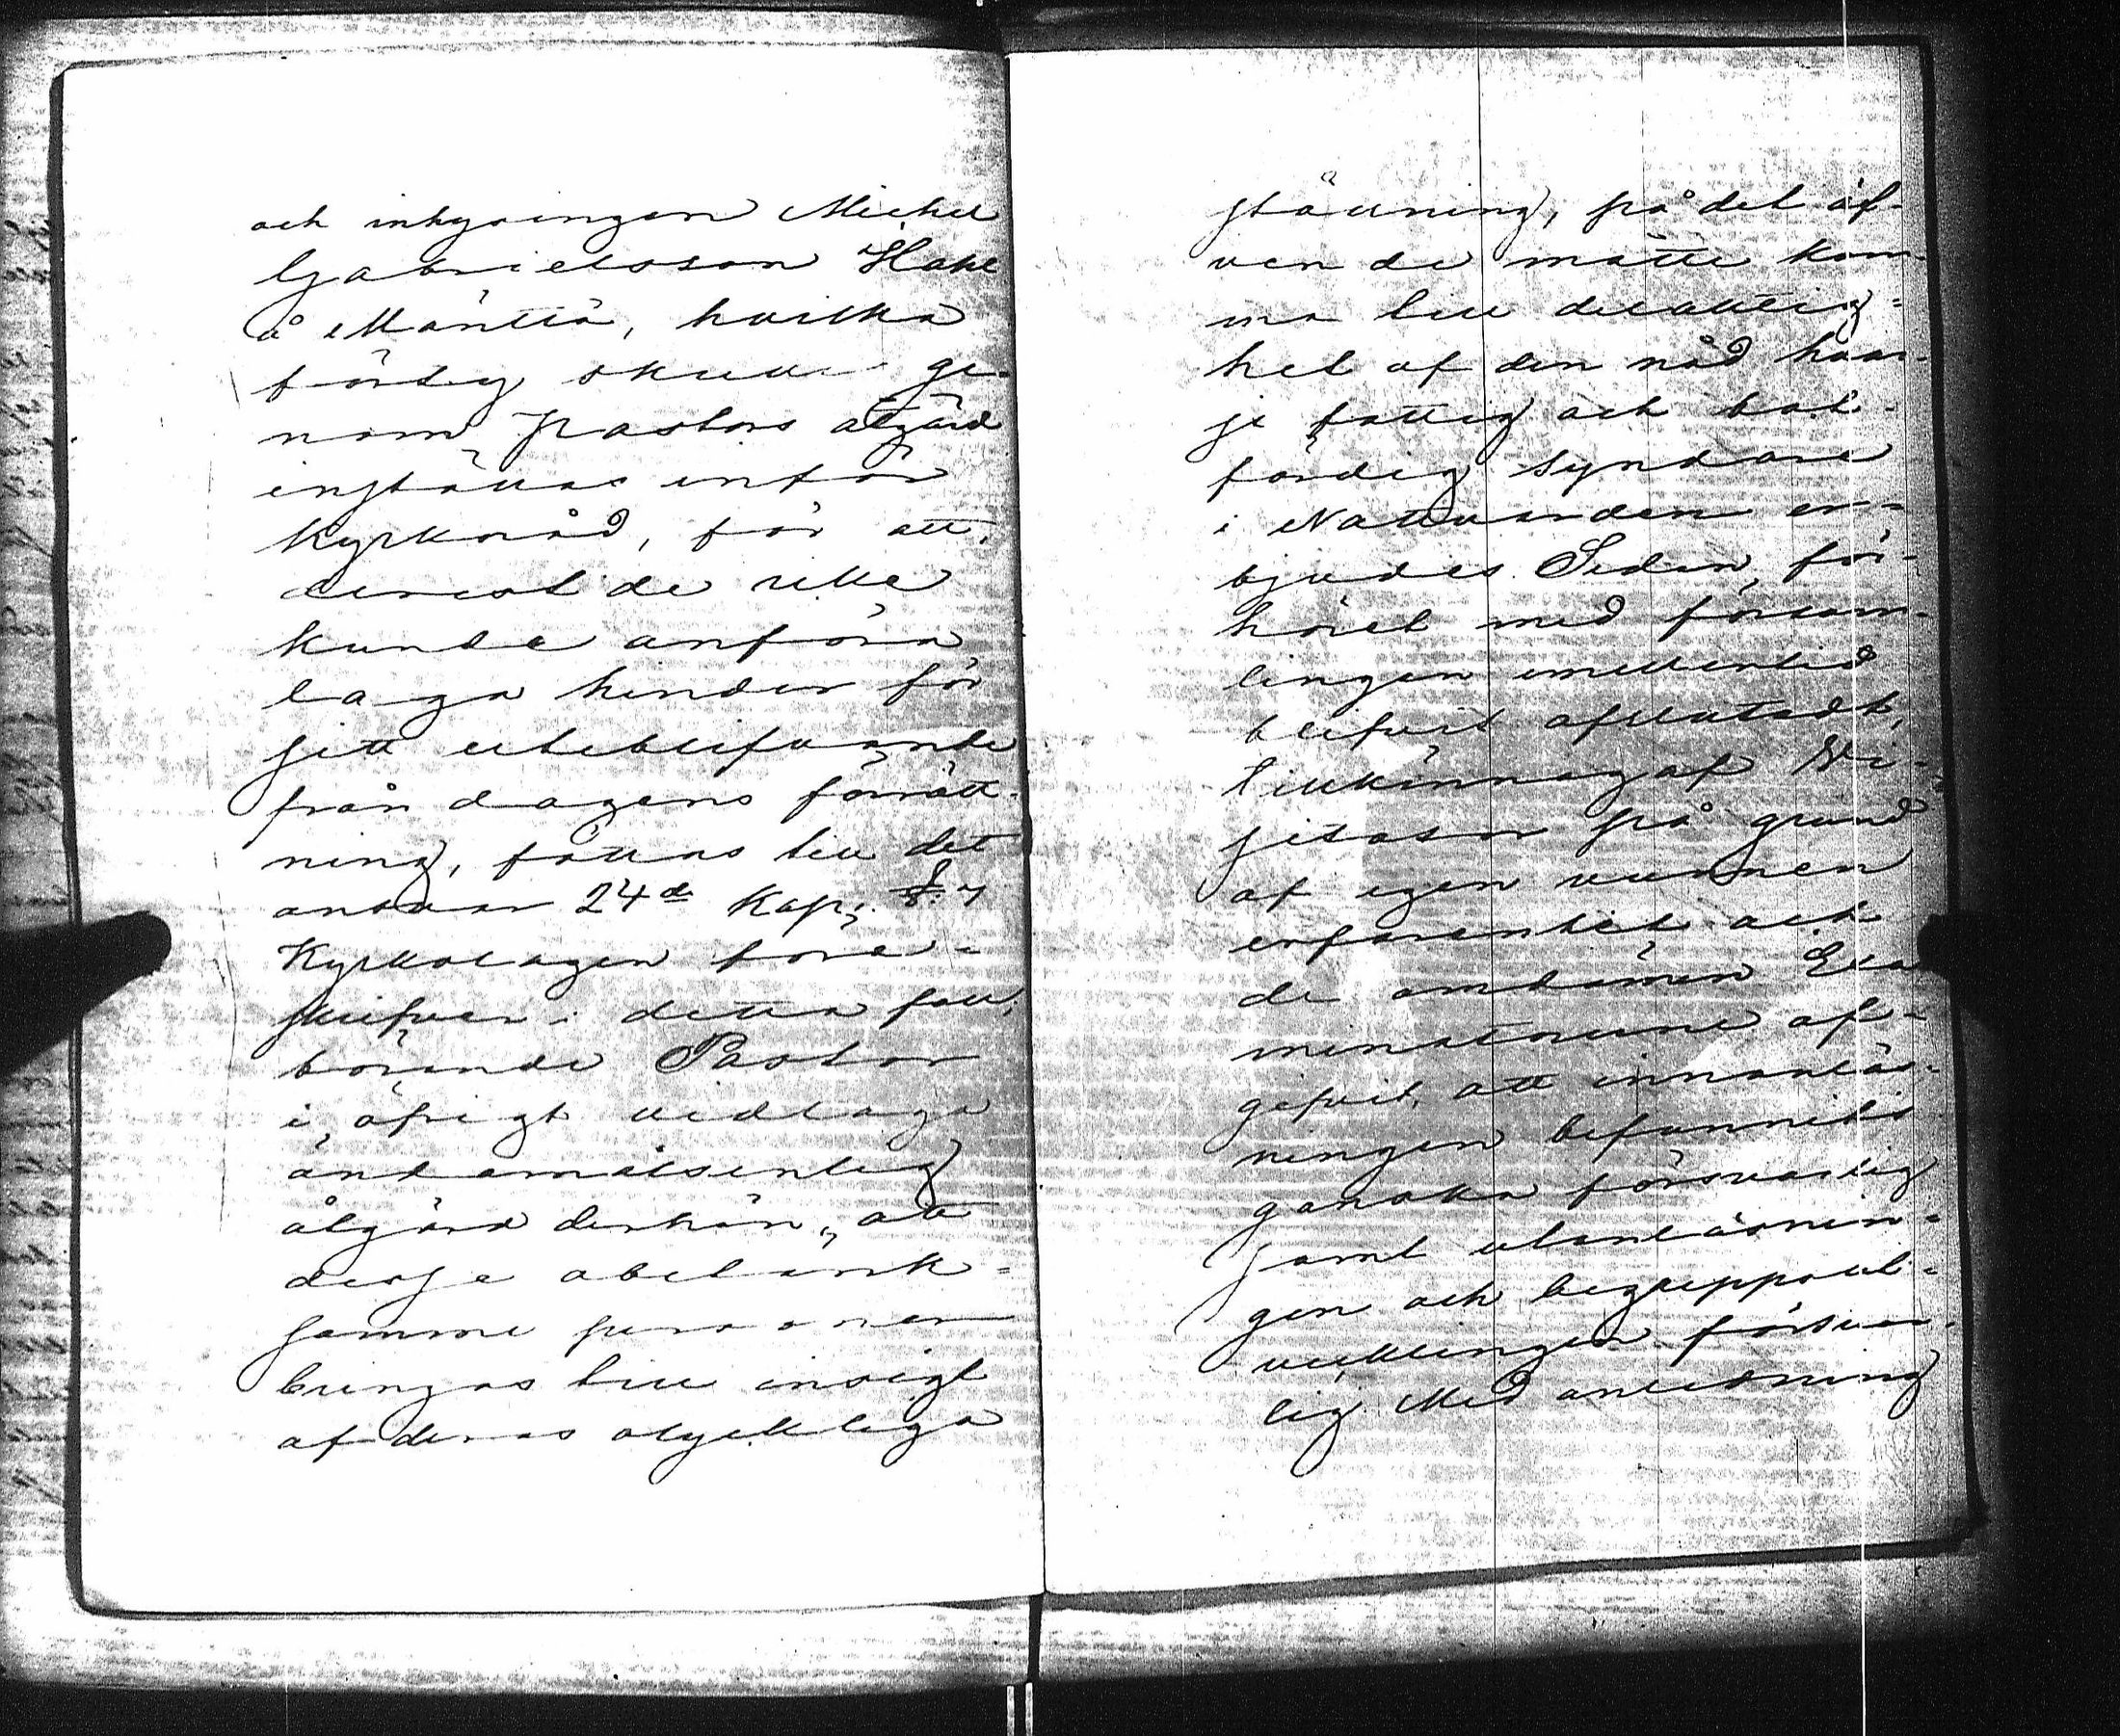 och inhysingen Michel
Gabrielsson Hake
å Mänttä, hvilka
förty skulle ge-
nom Pastors åtgärd
inställas inför
kyrkoråd, för att,
derest de icke
kunde anföra
laga hinder för
sitt uteblifvande
från dagens förrätt-
ning, fällas till det
answar 24de Kap; §. 7
Kyrkolagen före-
skrifver i detta fall,
börande Pastor
i öfrigt vidtaga
ändamålsenlig
åtgärd derhän, att
desse obetänk-
samme personer
bringas till insigt
af deras olyckliga
ställning, på det äf-
ven de måtte kom-
ma till delaktig-
het af den nåd hvar-
je fattig och bot-
färdig syndare
i Nattvarden er-
bjudes. Sedan för-
höret med försam-
lingen emellertid
blifvit afslutadt,
tillkännagaf Vi-
sitator på grund
af egen vunnen
erfarenhet och
de omdömen Exa
minatorerne af-
gifvit, att innanläs-
ningen befunnits
ganska försvarlig
samt utanläsnin-
gen och begreppsut-
vecklingen försvar-
lig. Med anledning